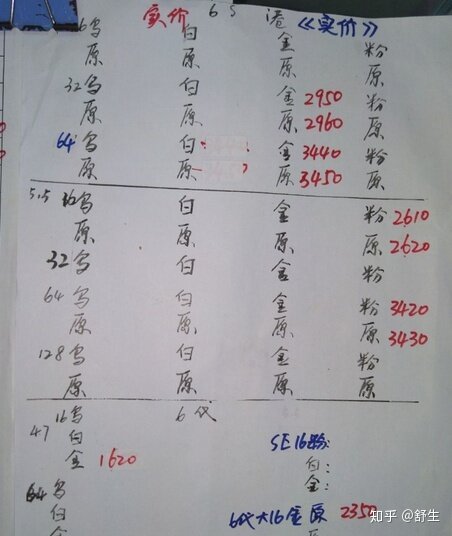 实价 6S 港 《实价》
16乌 白 金 粉
原 原 原 原
32乌 白 金 2950 粉
原 原 原 2960 原
64乌 白: 金 3440 粉
原 原 原 3450 原
5.5 16乌 白 金 粉 2610
原 原 原 原 2620
32乌 白 金 粉
64乌 白 金 粉 3420
原 原 原 原 3430
128乌 白 金 粉
原 原 原 原
47 16乌 6代
白
金 1620
SE16粉:
白:
金:
64乌
白
金
6代大16金 原 2350
知乎 @舒生